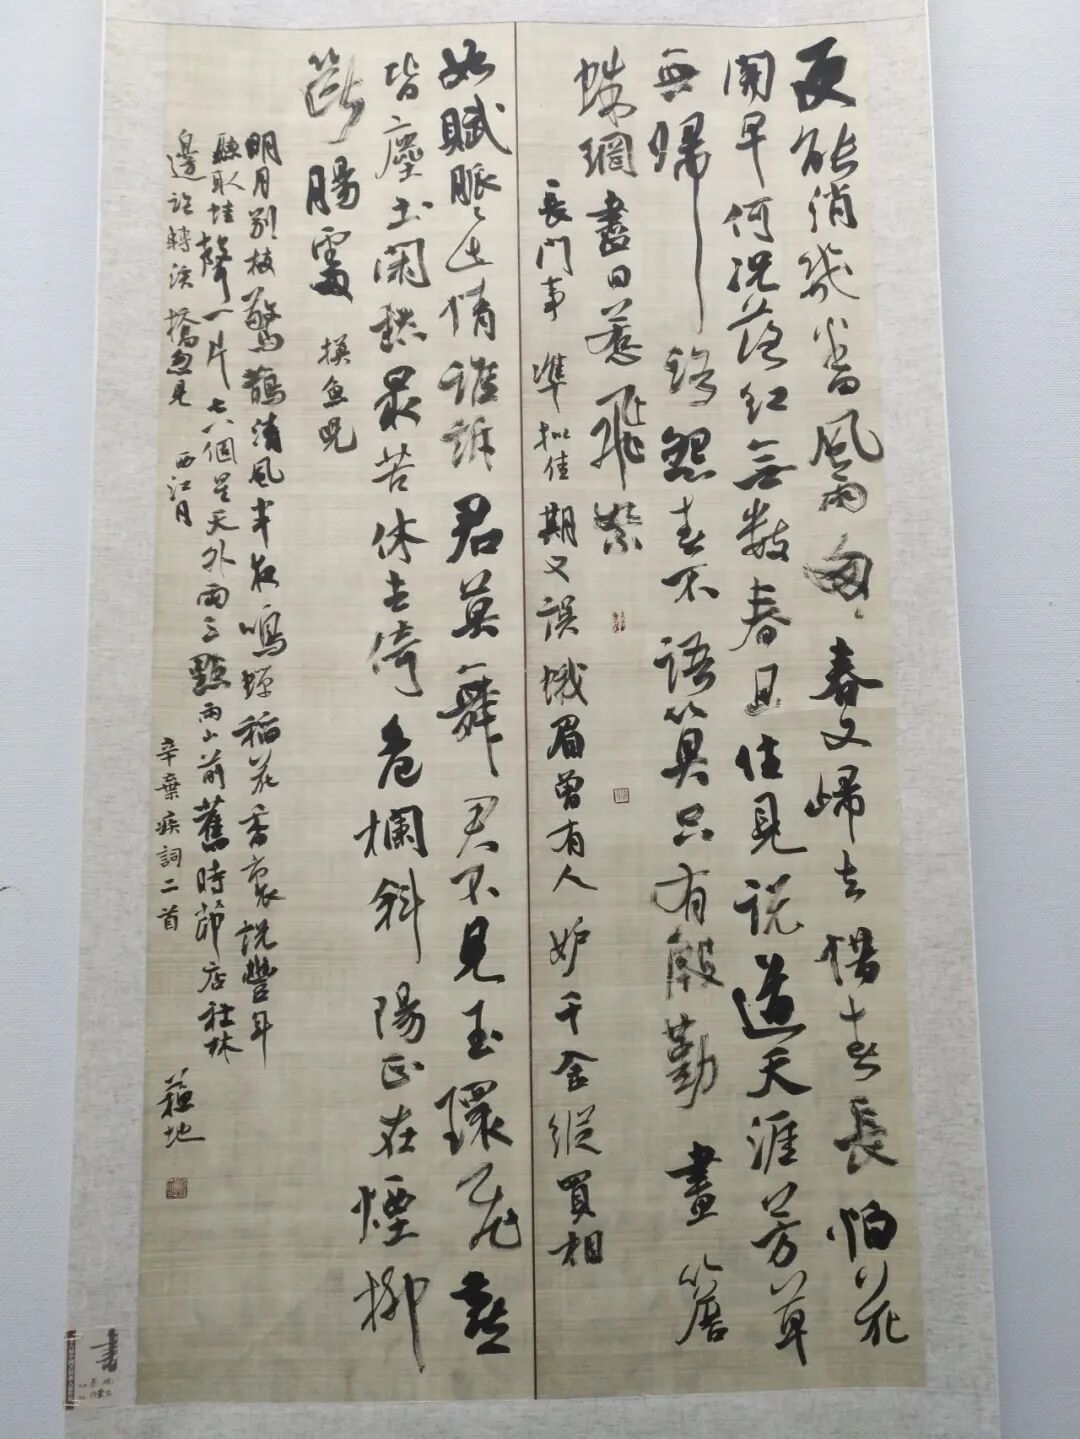 更能消幾番風雨匆匆春又歸去惜春長怕花
開早何況落紅無數春且住見說道天涯芳草
無歸路怨春不語算只有殷勤畫簷
蛛網盡日惹飛絮
長門事準擬佳期又誤蛾眉曾有人妒千金縱買相
如賦脈脈此情誰訴君莫舞君不見玉環飛燕
皆塵土閑愁最苦休去倚危欄斜陽正在煙柳
斷腸處 摸魚兒
明月別枝驚鵲清風半夜鳴蟬稻花香裏說豐年
聽取蛙聲一片七八個星天外兩三點雨山前舊時茆店社林
邊路轉溪橋忽見 西江月
辛棄疾詞二首
蘇地
書